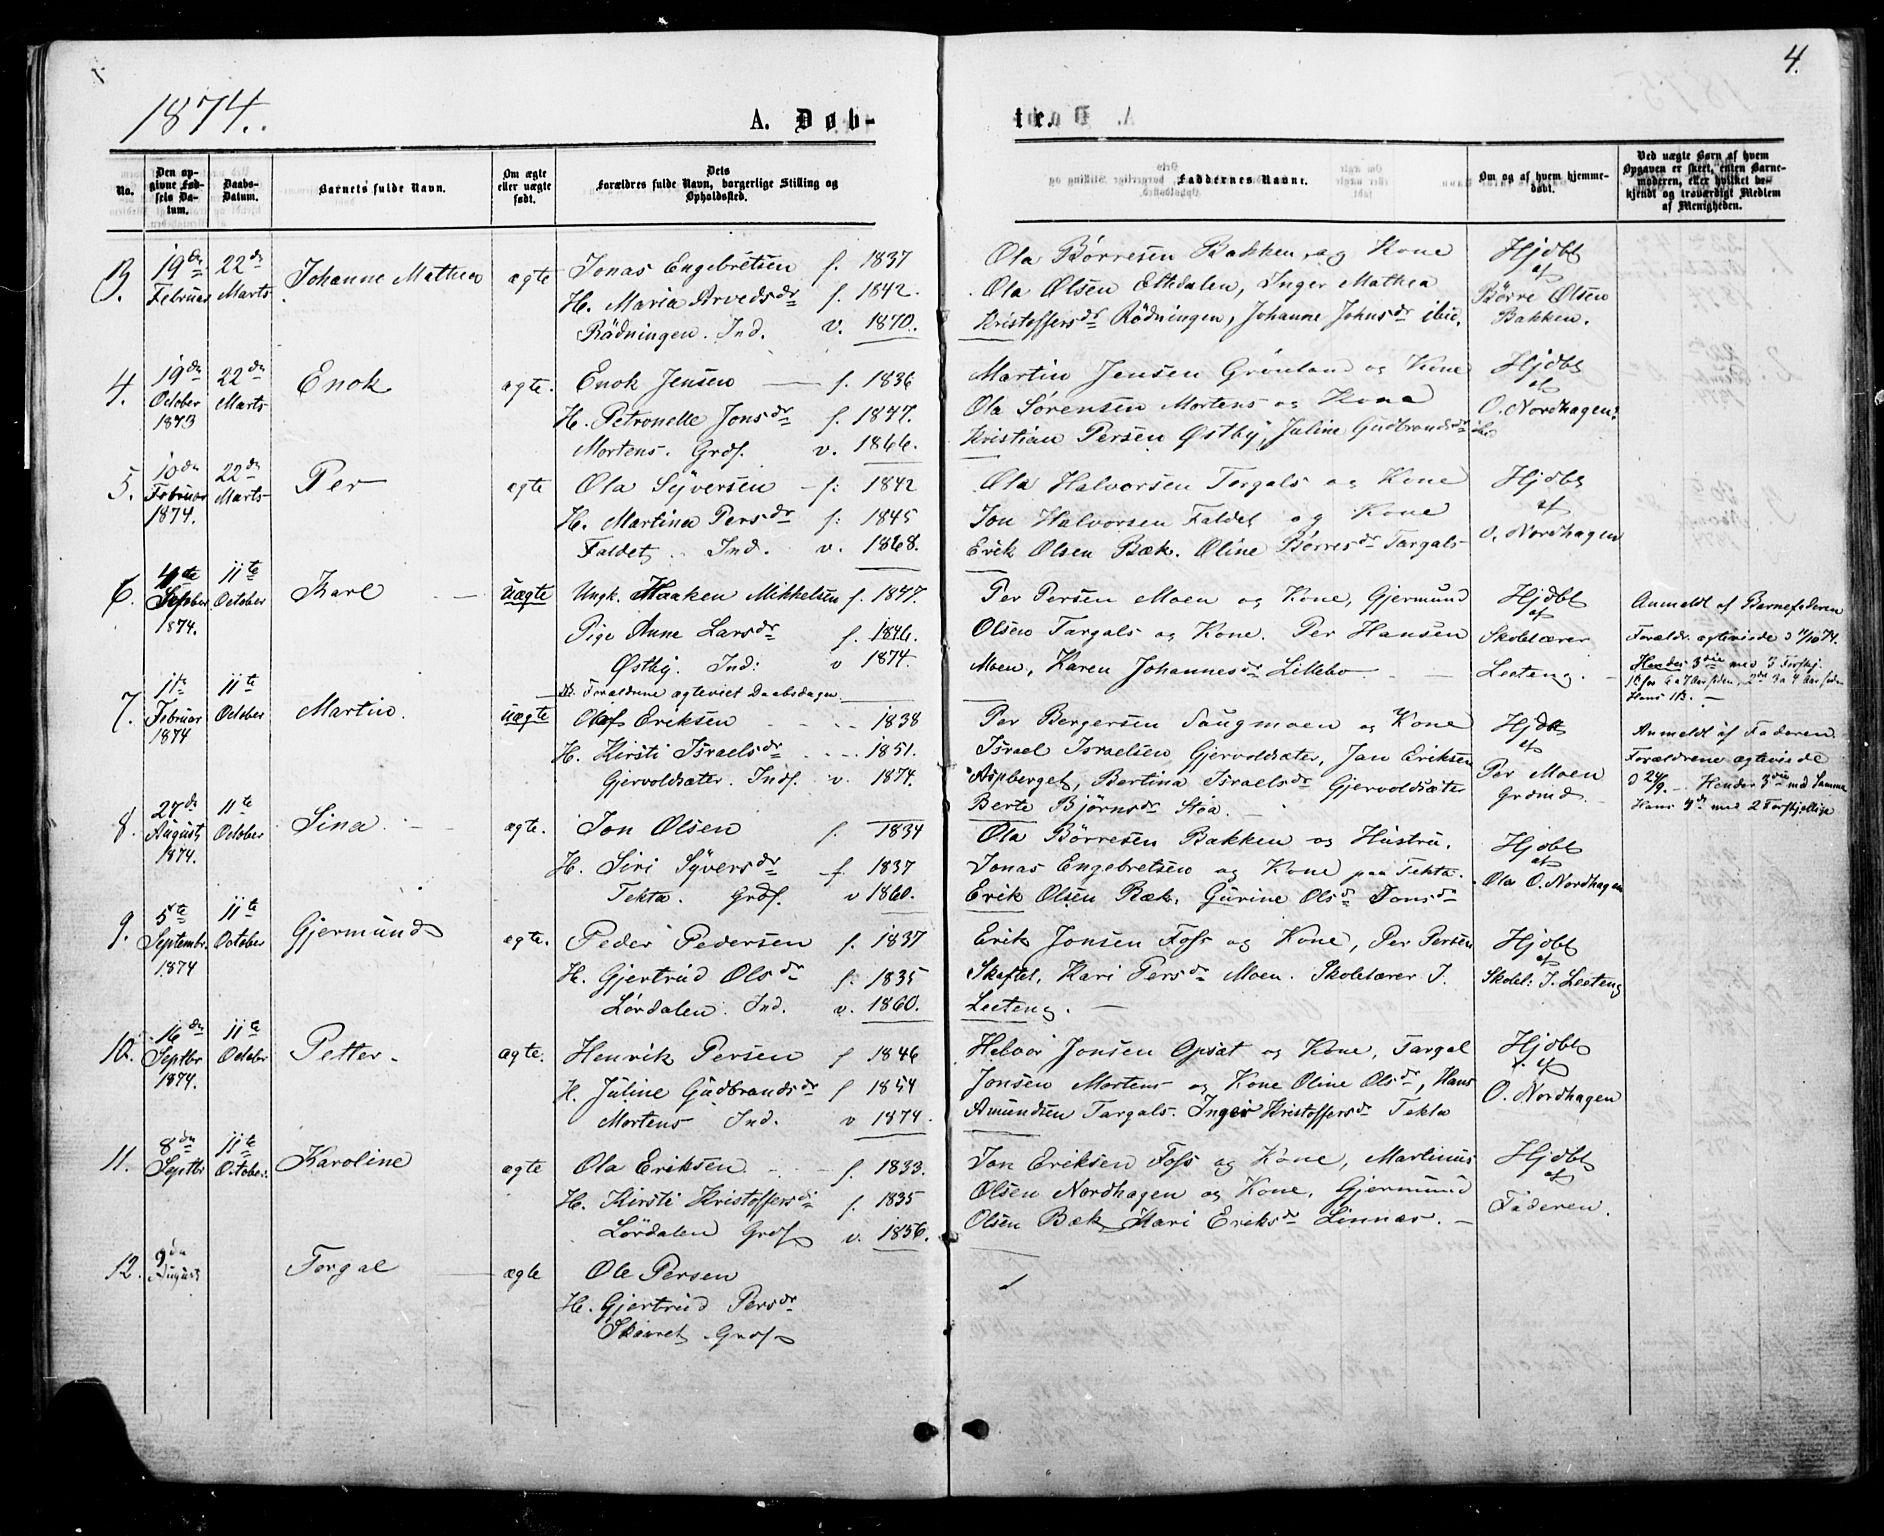 4.
1874.
A. Døb-
te.
No.
Den op-
givne Fød-
sels Da-
tum.
Daabs-
Datum.
Barnets fulde Navn.
Om ægte
eller uægte
født.
Dets
Forældres fulde Navn, borgerlige Stilling og
Opholdssted.
Faddernes Navne.
Om og af hvem hjemme-
døbt.
Ved uægte Børn af hvem
Opgaven er skeet, enten Barne-
moderen, eller hvilket be-
kjendt og troværdigt Medlem
af Menigheden.
3. 19de Februar 22de Marts Johanne Mathea ægte Jonas Engebretsen f. 1837
H. Maria Arvedsdr f. 1842.
Rödningen. Ind. v. 1870.
Ola Börresen Bakken, og Kone
Ola Olsen Eltdalen, Inger Mathea
Kristoffersdr Rödningen, Johanne Johnsdr ibid.
Hjdbt
af
Börre Olsen
Bakken.
4. 19de October 1873 22de Marts Enok ægte. Enok Jensen f. 1836
H. Petronelle Jonsdr f. 1847.
Mortens. Grdf. v. 1866.
Martin Jensen Grönland og Kone
Ola Sörensen Mortens og Kone
Kristian Persen Østby, Juline Gudbrandsdr ibid
Hjdbt
af
O. Nordhagen.
5. 10de Februar 1874. 22de Marts Per ægte Ola Syversen f: 1842
H. Martinea Persdr f: 1845
Faldet. Ind. v. 1868.
Ola Halvorsen Torgals og Kone
Jon Halvorsen Faldet og Kone
Erik Olsen Bæk. Oline Börresdr Torgals
Hjdbt
af
O. Nordhagen
6. 4de Septber 1874. 11te October Karl uægte Ungk. Haaken Mikkelsen f. 1847.
Pige Anne Larsdr f. 1846.
Østby. Ind: v 1874.
Forældrene ægteviet Daabsdagen.
Per Persen Moen og Kone, Gjermund
Olsen Torgals og Kone. Per Hansen
Moen, Karen Johannesdr Lillebo
Hjdbt
af
Skolelærer
Leeteng.
Anmeldt af Barnefaderen
Forældr. ægteviede
Hendes 3die med 3 Forskj.
7. 11te Februar 1874 11te October Martin. uægte Olof Eriksen 1838
H. Kirsti Israelsdr 1851.
Gjervoldsæter. Indf. v. 1874.
Per Bergersen Saugmoen og Kone
Israel Israelsen Gjervoldsæter, Jan Eriksen
Aspberget, Bertina Israelsdr Gjervoldsæter
Berte Björnsdr Stoa.
Hjdbt
af
Per Moen
Anmeldt af Faderen.
Forældrene ægteviede
d 24/9. Hendes 3die med Samme
Hans 3de med 2 Forskjellige
8. 27de August 1874. 11te October Sina. ægte. Jon Olsen f. 1834
H. Siri Syversdr f 1837
Tekta. Grdf. v 1860.
Ola Börresen Bakken og Hustru.
Jonas Engebretsen og Kone paa Tekta.
Erik Olsen Bæk, Gurine Olsdr Jonsdr
Hjdbt
af
Ola O. Nordhagen
9. 5te Septembr. 1874 11te October Gjermund ægte. Peder Pedersen f. 1837
H. Gjertrud Olsdr f: 1835
Lördalen. Ind. v. 1860.
Erik Jonsen Foss og Kone, Per Persen
Skaftet, Kari Persdr Moen. Skolelærer I.
Leeteng.
Hjdbt
af
Skolel: I. Leeteng
10. 16de Septbr 1874. 11te October Petter. ægte. Henrik Persen f 1846
H. Juline Gudbrandsdr f 1854
Mortens Ind. v 1874.
Halvor Jonsen Opsat og Kone, Torgal
Jonsen Mortens og Kone Oline Olsdr, Hans
Amundsen Torgals. Inger Kristoffersdr Tekta
Hjdbt
af
O. Nordhagen
11. 8de Septbr 11te October. Karoline ægte Ola Eriksen. f. 1833.
H. Kirsti Kristoffersdr f. 1835
Lördalen Grdf v. 1856.
Jon Eriksen Foss og Kone, Martinus
Olsen Nordhagen og Kone, Gjermund
Olsen Bæk, Kari Eriksdr Linnæs.
Hjdbt
af
Faderen.
12. 9de August Torgal ægte Ole Persen
H. Gjertrud Persdr
Skavret Grdf